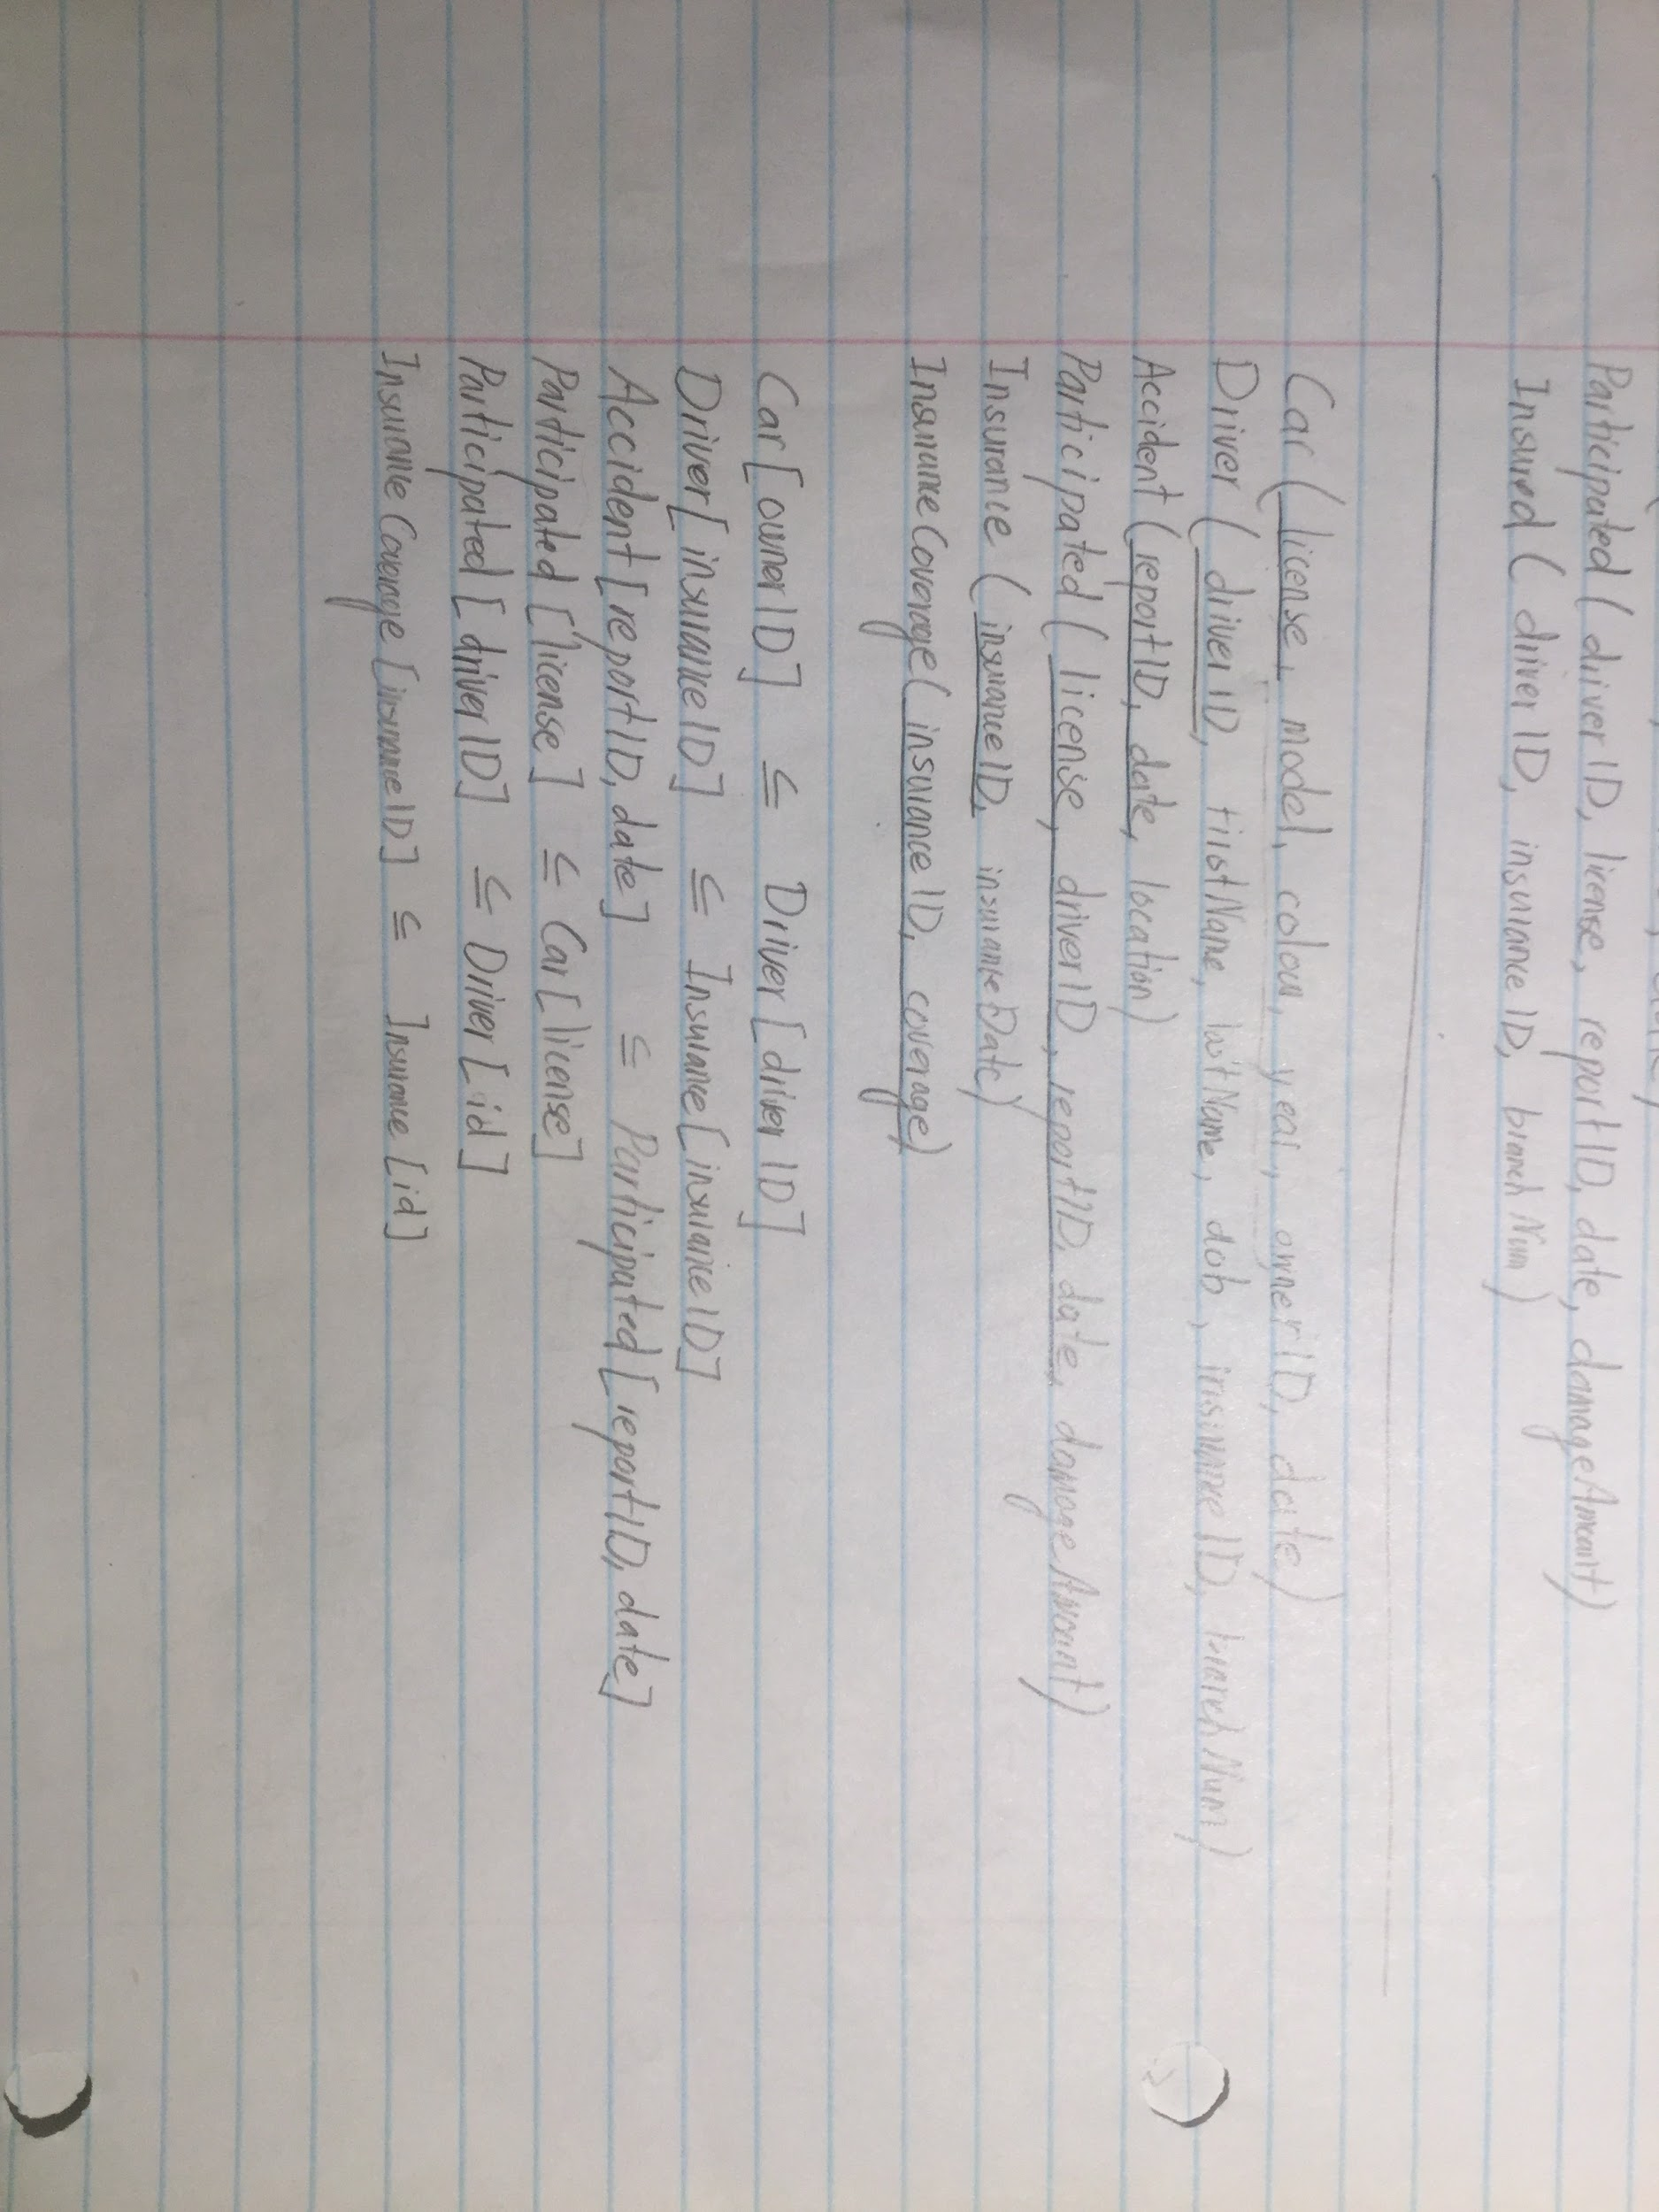 Participated ( driverID, license, reportID, date, damageAmount)
Insured ( driverID, insuranceID, branchNum)
Car ( license, model, colour, year, ownerID, date)
Driver ( driverID, firstName, lastName, dob, insuranceID, branchNum)
Accident ( reportID, date, location)
Participated ( license, driverID, reportID, date, damageAmount)
Insurance ( insuranceID, insuranceDate)
InsuranceCoverage( insuranceID, coverage)
Car [ownerID] ⊆ Driver [driverID]
Driver[insuranceID] ⊆ Insurance [insuranceID]
Accident [reportID, date] ⊆ Participated [reportID, date]
Participated [license] ⊆ Car [license]
Participated [driverID] ⊆ Driver [id]
InsuranceCoverage [insuranceID] ⊆ Insurance [id]